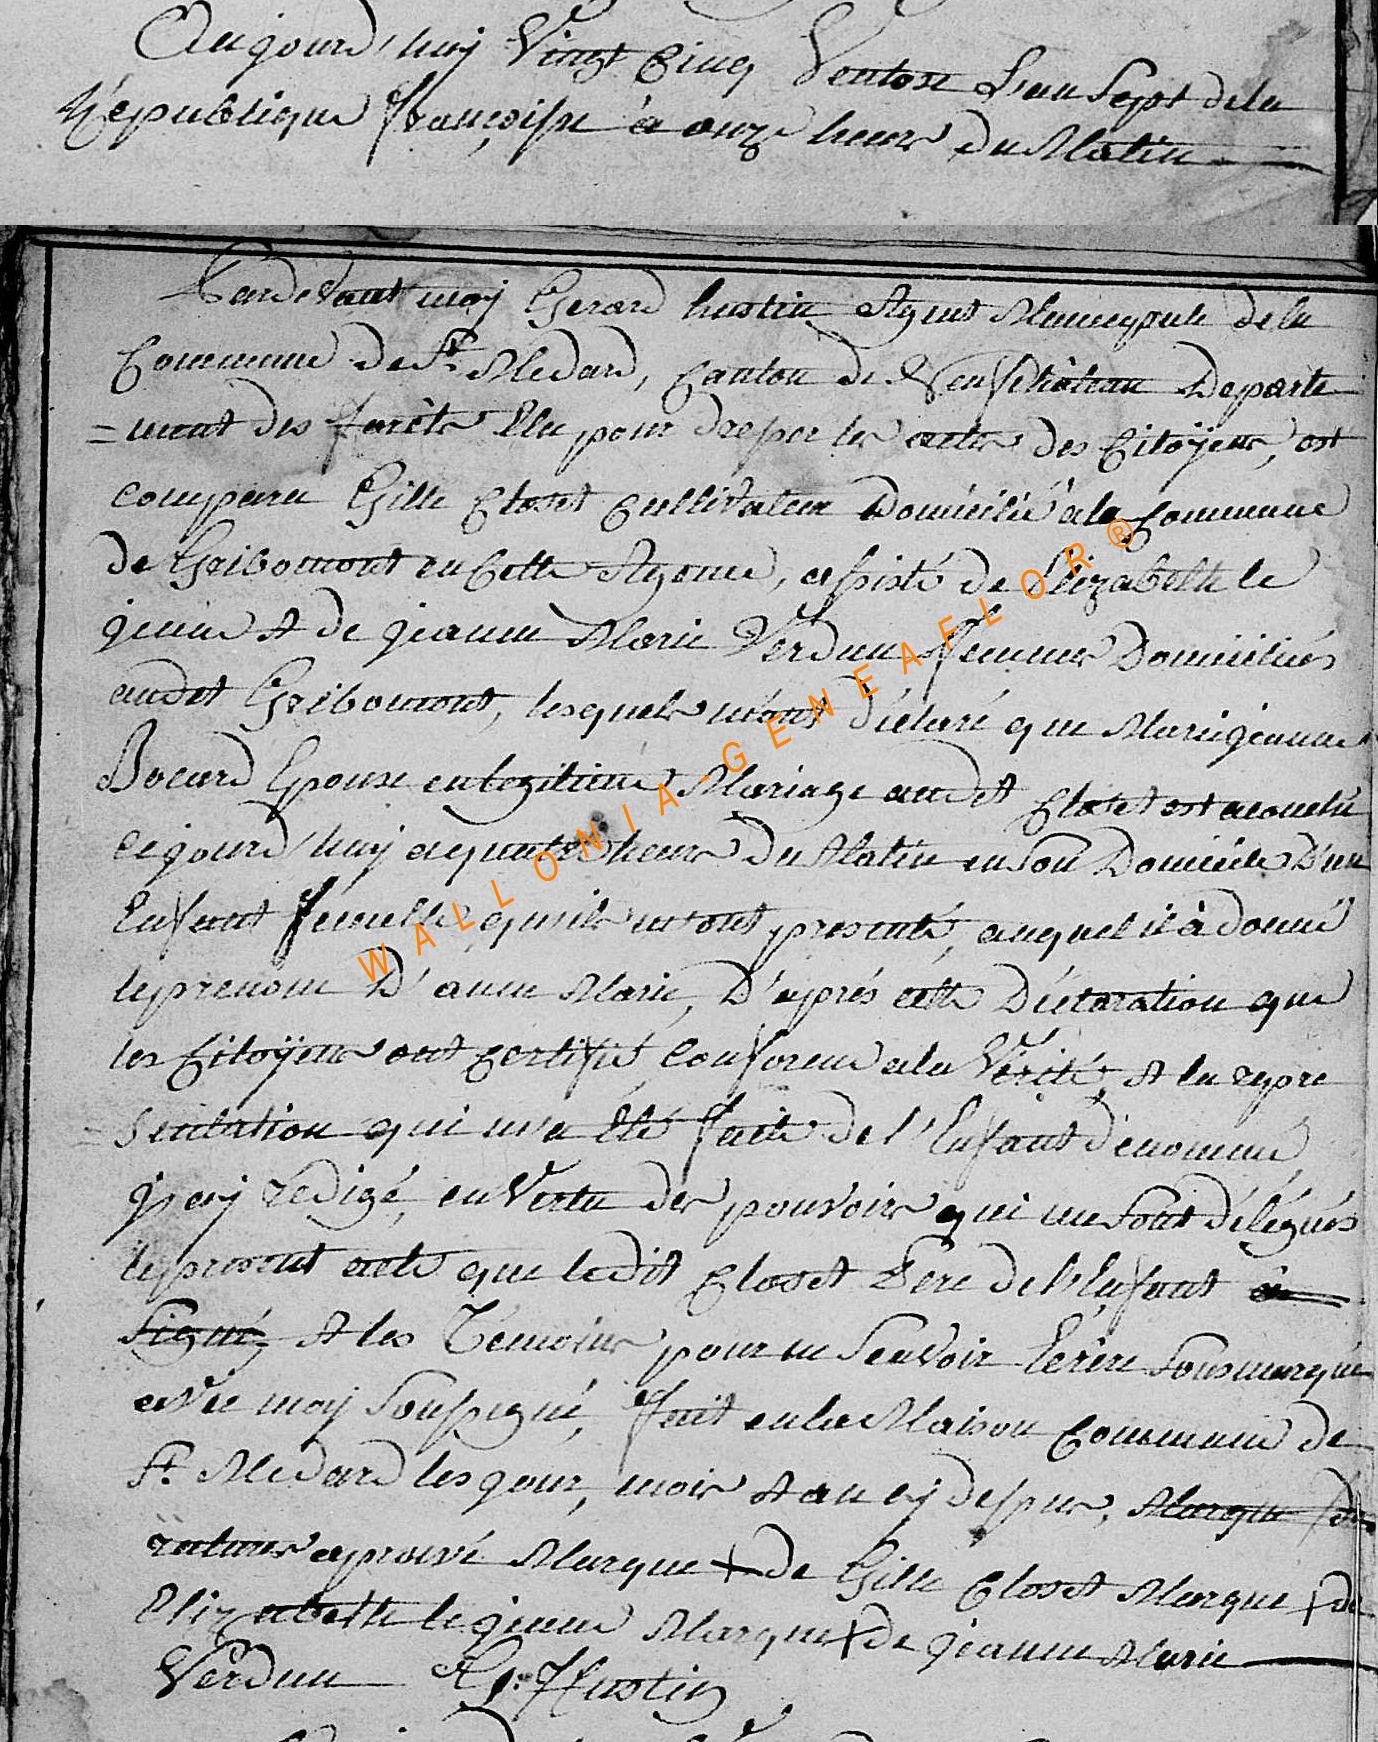 Aujourd'huÿ Vingt Cinq Ventose L'an Sept de la
République françoisse à onze heures du Matin
Pardevant moÿ Gerard hustin Agent Municypale de la
Commune de St. Medard, Canton de Neufchâteau Departe
=ment des forêts Elu pour dresser les actes des Citoÿens, est
comparu Gille Closet Cultivateur Domicilié à la Commune
de Gribomont en Cette Agence, assisté de Elizabethe le
jeune & de jeanne Marie Verdun femmes Domiciliés
audit Gribomont, lesquels m'ont déclaré que Marie jeanne
Bocard Epouse en legitime Mariage audit Closet est acouché
cejourd'huÿ a quatre heures du Matin en son Domicile d'un
Enfant femelle qu'ils m'ont presenté, auquel il à donné
le prenom D'anne Marie, D'après cette Déclaration que
les Citoÿens ont certifié conforme a la Vérité, & la repre
=sentation qui m'a été faite de l'Enfant dénommé,
j'aÿ redigé, en Vertu des pouvoirs qui me sont délégués
le present acte que ledit Closet Pere de l'Enfant à
signé & les Témoins pour ne Scavoir Ecrire Sousmarqué
avec moÿ Soussigné, fait en la Maison Commune de
St. Medard les jour, mois & an cÿ dessus, Marque
ratures aprouvé Marque + de Gille Closet Marque + de
Elizabethe le jeune Marque + de jeanne Marie
Verdun G: Hustin
WALLONIA-GENEAFLOR®